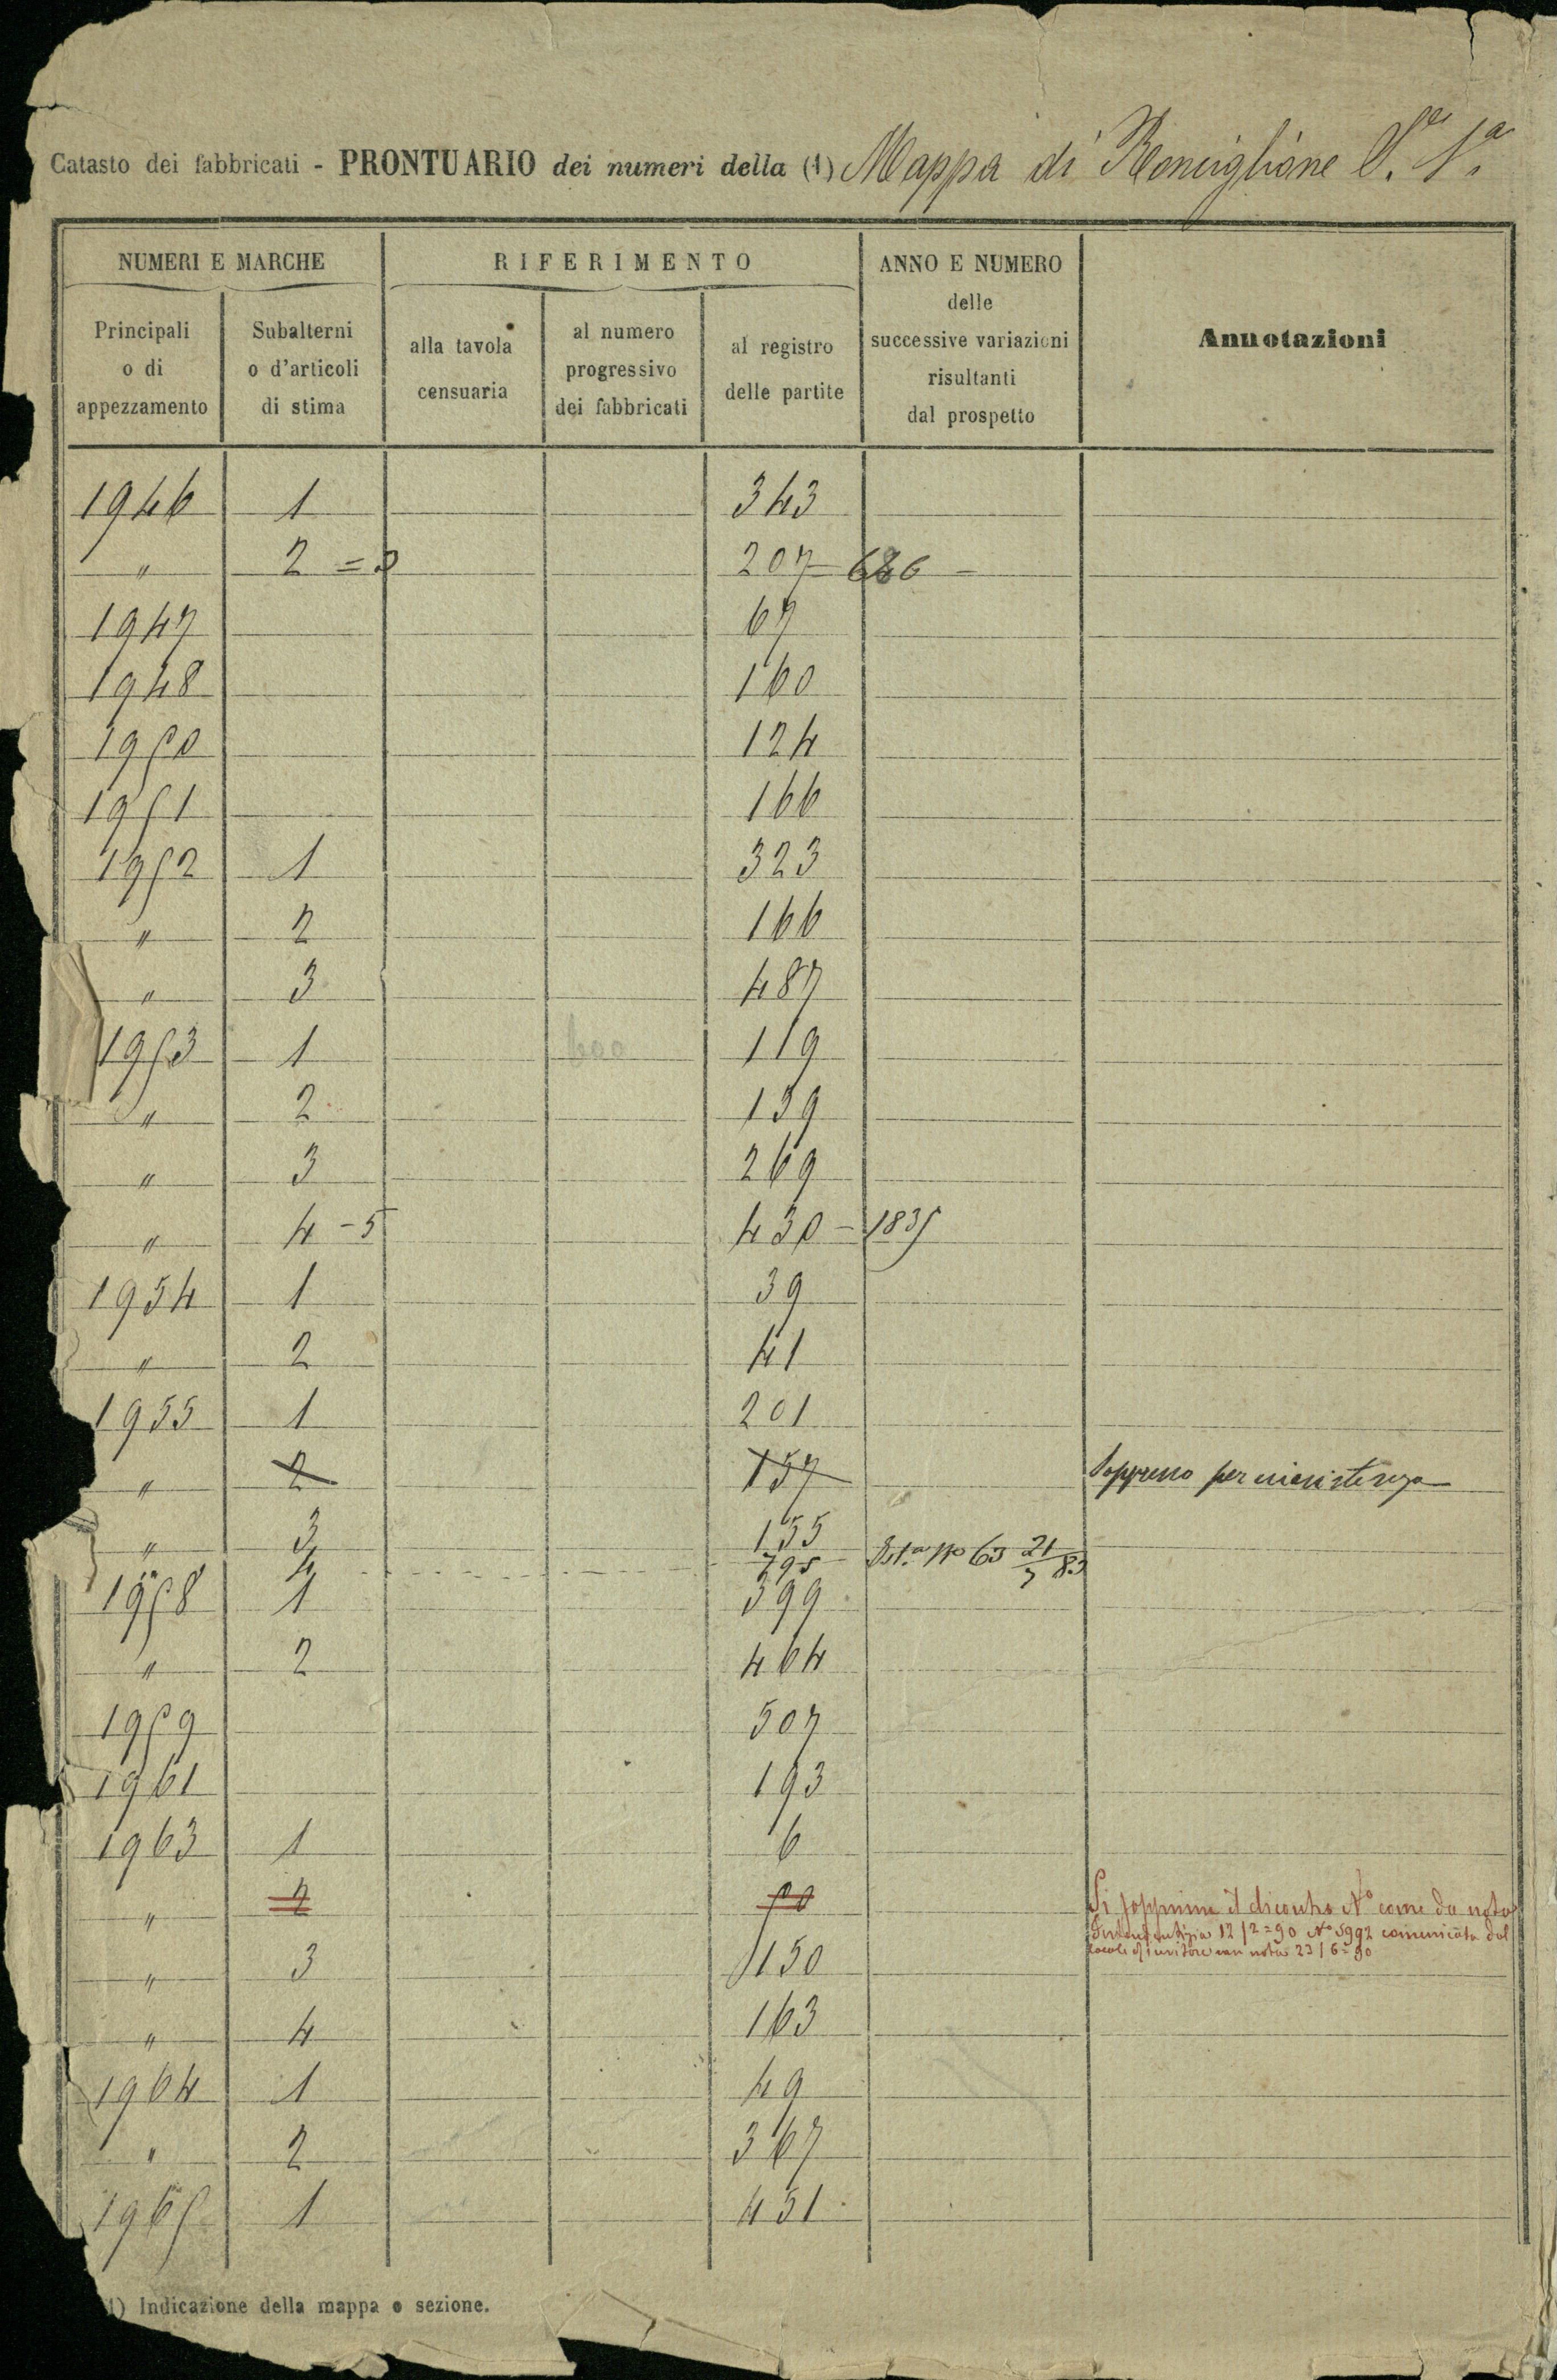 Catasto dei fabbricati - PRONTUARIO dei numeri della (1) Mappa di Ronciglione S.ne 1.a
NUMERI E MARCHE
RIFERIMENTO
ANNO E NUMERO
delle
successive variazioni
risultanti
dal prospetto
Annotazioni
Principali
o di
appezzamento
Subalterni
o d'articoli
di stima
alla tavola
censuaria
al numero
progressivo
dei fabbricati
al registro
delle partite
1946 1 343
" 2 = 3 207 =
1947 67
1948 160
1950 124
1951 166
1952 1 323
" 2 166
" 3 487
1953 1 600 119
" 2 139
" 3 269
" 4 - 5 430 - 1835
1954 1 39
" 2 41
1955 1 201
" 2 157 Soppresso per inesistenza
" 3 155
" 4 795 N° 63 21/7 83
1958 1 399
" 2 464
1959 507
1961 193
1963 1 6
" 2 90 Si sopprime il dicontro N° come da nota
Intendentizia 12/2=90 N° 5992 comunicata dal
locale con nota 23/6=90
" 3 150
" 4 163
1964 1 49
" 2 367
1965 1 451
1) Indicazione della mappa o sezione.